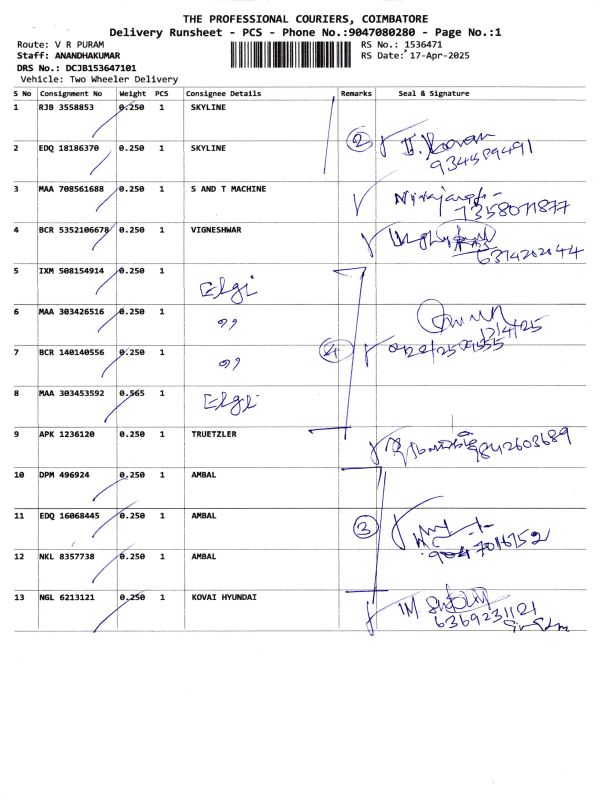 THE PROFESSIONAL COURIERS, COIMBATORE
Delivery Runsheet - PCS - Phone No.:9047080280 - Page No.:1
Route: V R PURAM RS No.: 1536471
Staff: ANANDHAKUMAR RS Date: 17-Apr-2025
DRS No.: DCJB153647101
Vehicle: Two Wheeler Delivery
S No Consignment No Weight PCS Consignee Details Remarks Seal & Signature
1 RJB 3558853 0.250 1 SKYLINE
2
2 EDQ 18186370 0.250 1 SKYLINE
934589491
3 MAA 708561688 0.250 1 S AND T MACHINE
7358071877
4 BCR 5352106678 0.250 1 VIGNESHWAR
6374202044
5 IXM 508154914 0.250 1 Elgi
6 MAA 303426516 0.250 1 "
4
7 BCR 140140556 0.250 1 "
8 MAA 303453592 0.565 1 Elgi
9 APK 1236120 0.250 1 TRUETZLER
9842603689
10 DPM 496924 0.250 1 AMBAL
11 EDQ 16068445 0.250 1 AMBAL
3
12 NKL 8357738 0.250 1 AMBAL
9047016752
13 NGL 6213121 0.250 1 KOVAI HYUNDAI
6369231121